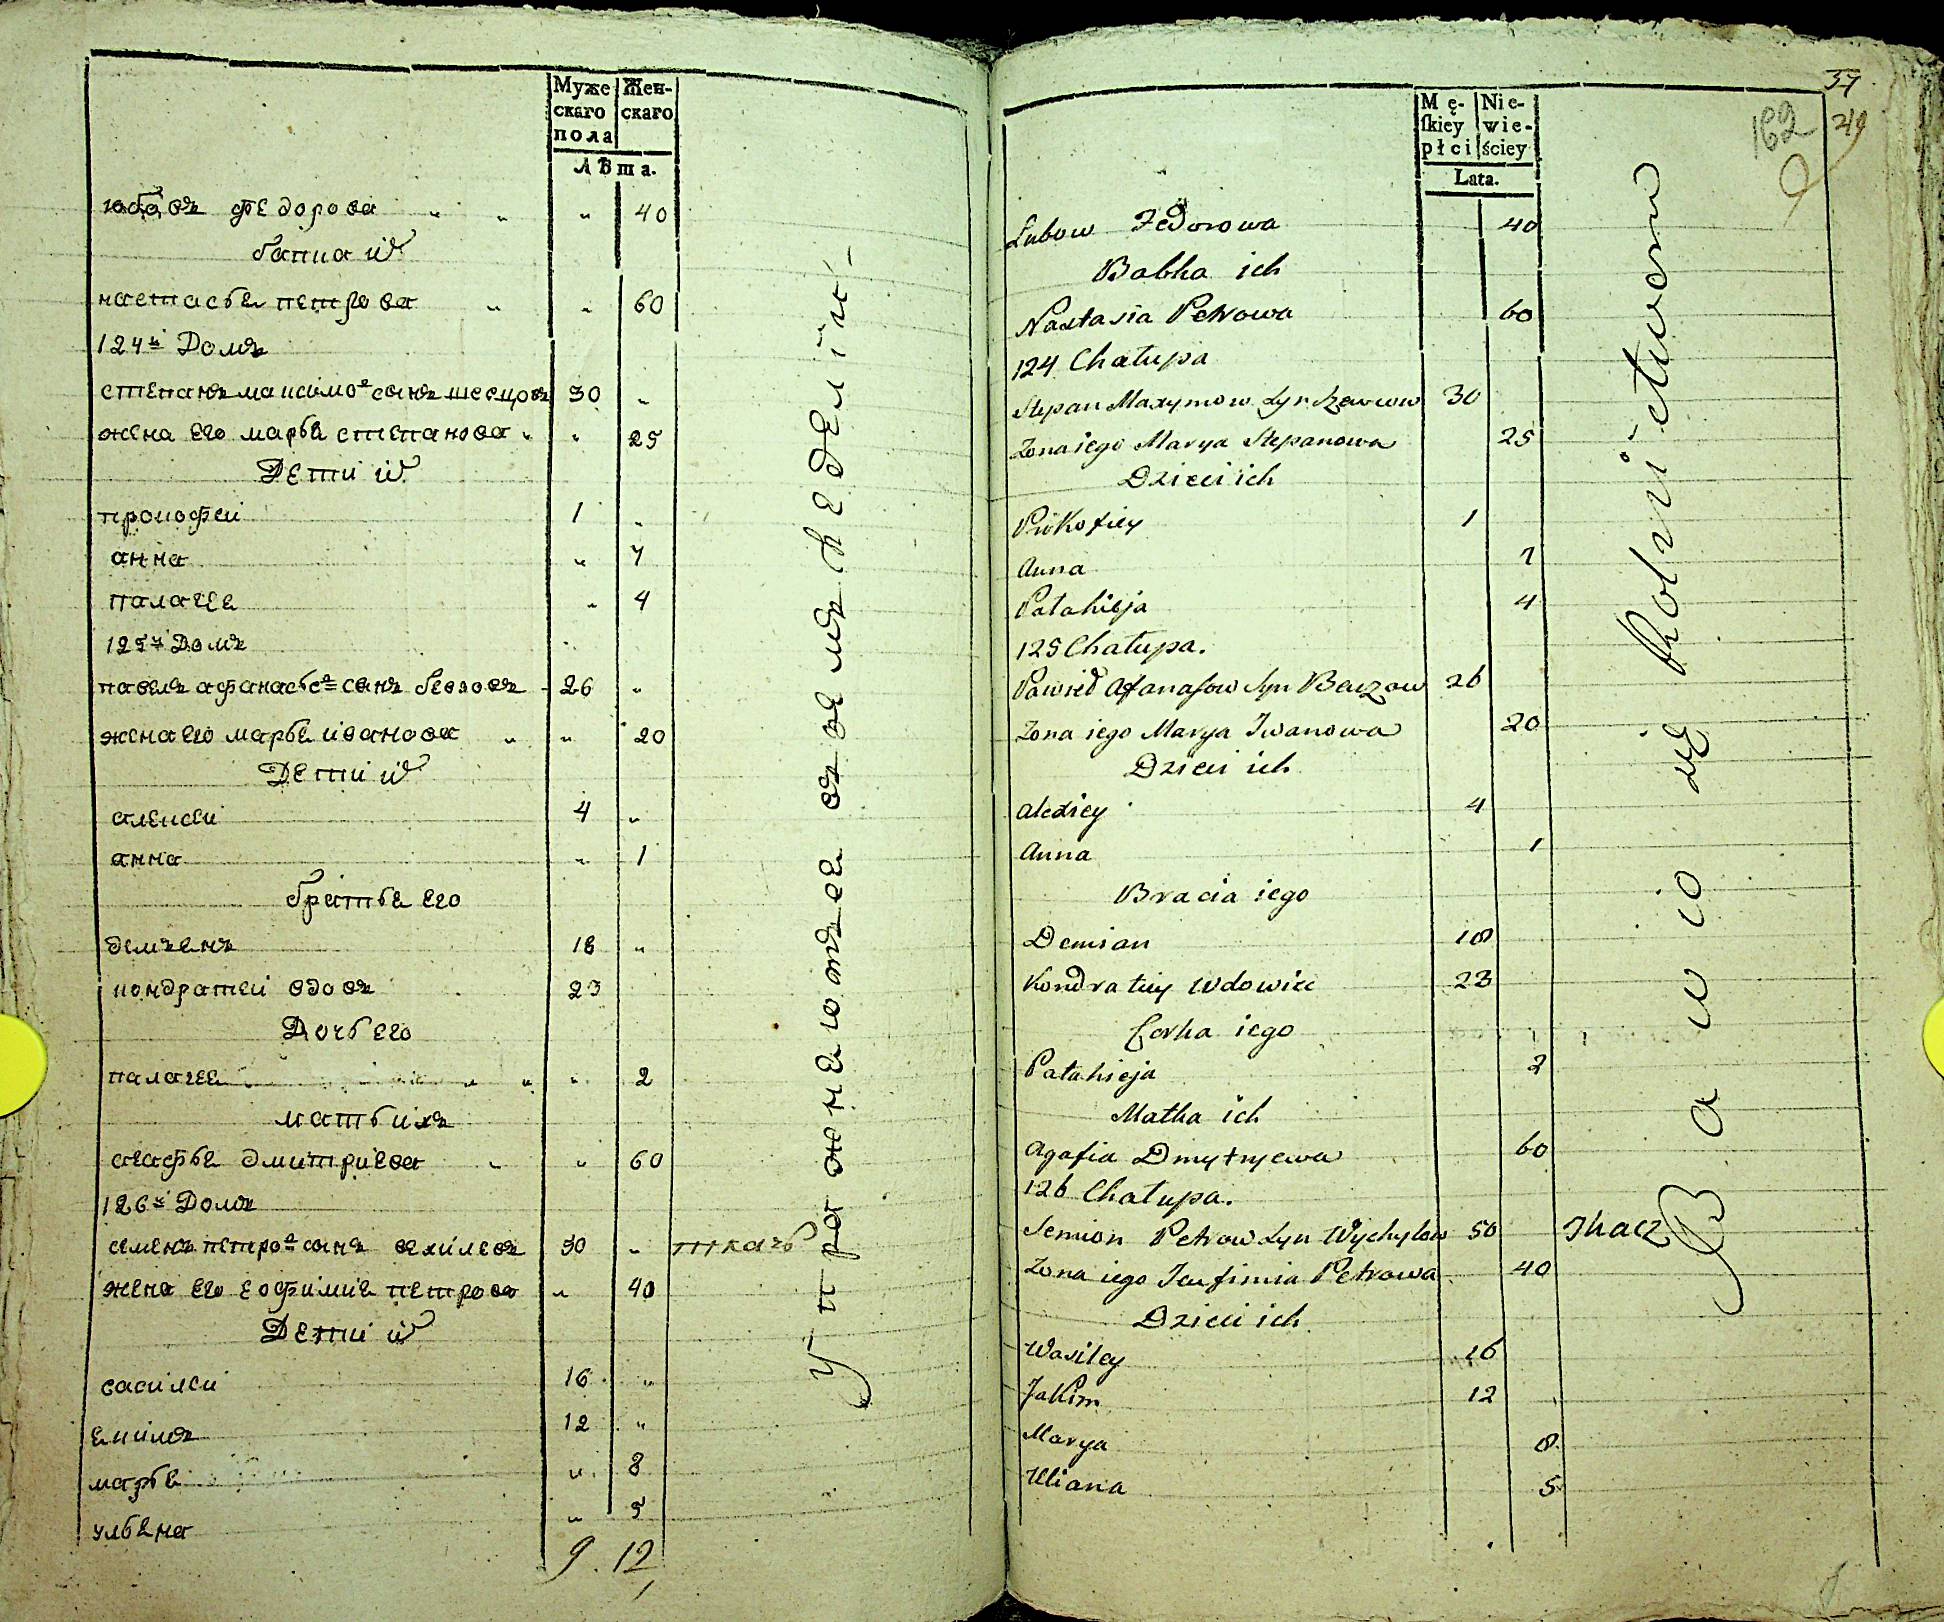 Муже Жен-
скаго скаго
пола
Лѣта.
юбовъ федорова " " " 40
бапка их
настасья петрова " " 60
124й Домъ
степанъ максимовъ сынъ шевцовъ 30 "
жена его марья степанова " " 25
Дети их
прокофеи 1 "
анна " 7
палагея " 4
125й Домъ
павелъ афанасьевъ сынъ бевзовъ 26 "
жена его марья иванова " " 20
Дети их
алексеи 4 "
анна " 1
братья его
демьянъ 18 "
кондратеи вдовъ 23
Дочь его
палагея " " " 2
мать ихъ
агафья дмитриева " " 60
126й Домъ
семенъ петровъ сынъ вехилевъ 50 " ткачь
жена его еофимия петрова " 40
Дети их
василеи 16 "
екимъ 12 "
марья " 8
ульяна " 5
9. 12
упражняютжся въ земъ неделии
37
162
249
Mę- Nie-
skiey wie-
płci ściey
Lata.
Lubow Fedorowa 40
Babka ich
Nastasia Petrowa 60
124 Chałupa
Stepan Maxymow Syn Szewcow 30
Zona iego Marya Stepanowa 25
Dzieci ich
Prokofiey 1
Anna 7
Pałahieja 4
125 Chałupa.
Pawieł Afanasow Syn Bewzow 26
Zona iego Marya Iwanowa 20
Dzieci ich
Alexiey 4
Anna 1
Bracia iego
Demian 18
Kondratiy Wdowiec 23
Corka iego
Pałahieja 2
Matka ich
Agafia Dmytryewa 60
126 Chałupa.
Semion Petrow Syn Wychylow 50 Tkacz
Zona iego Jeufimia Petrowa 40
Dzieci ich
Wasiley 16
Jakim 12
Marya 8
Uliana 5
Bawią się Rolnictwem